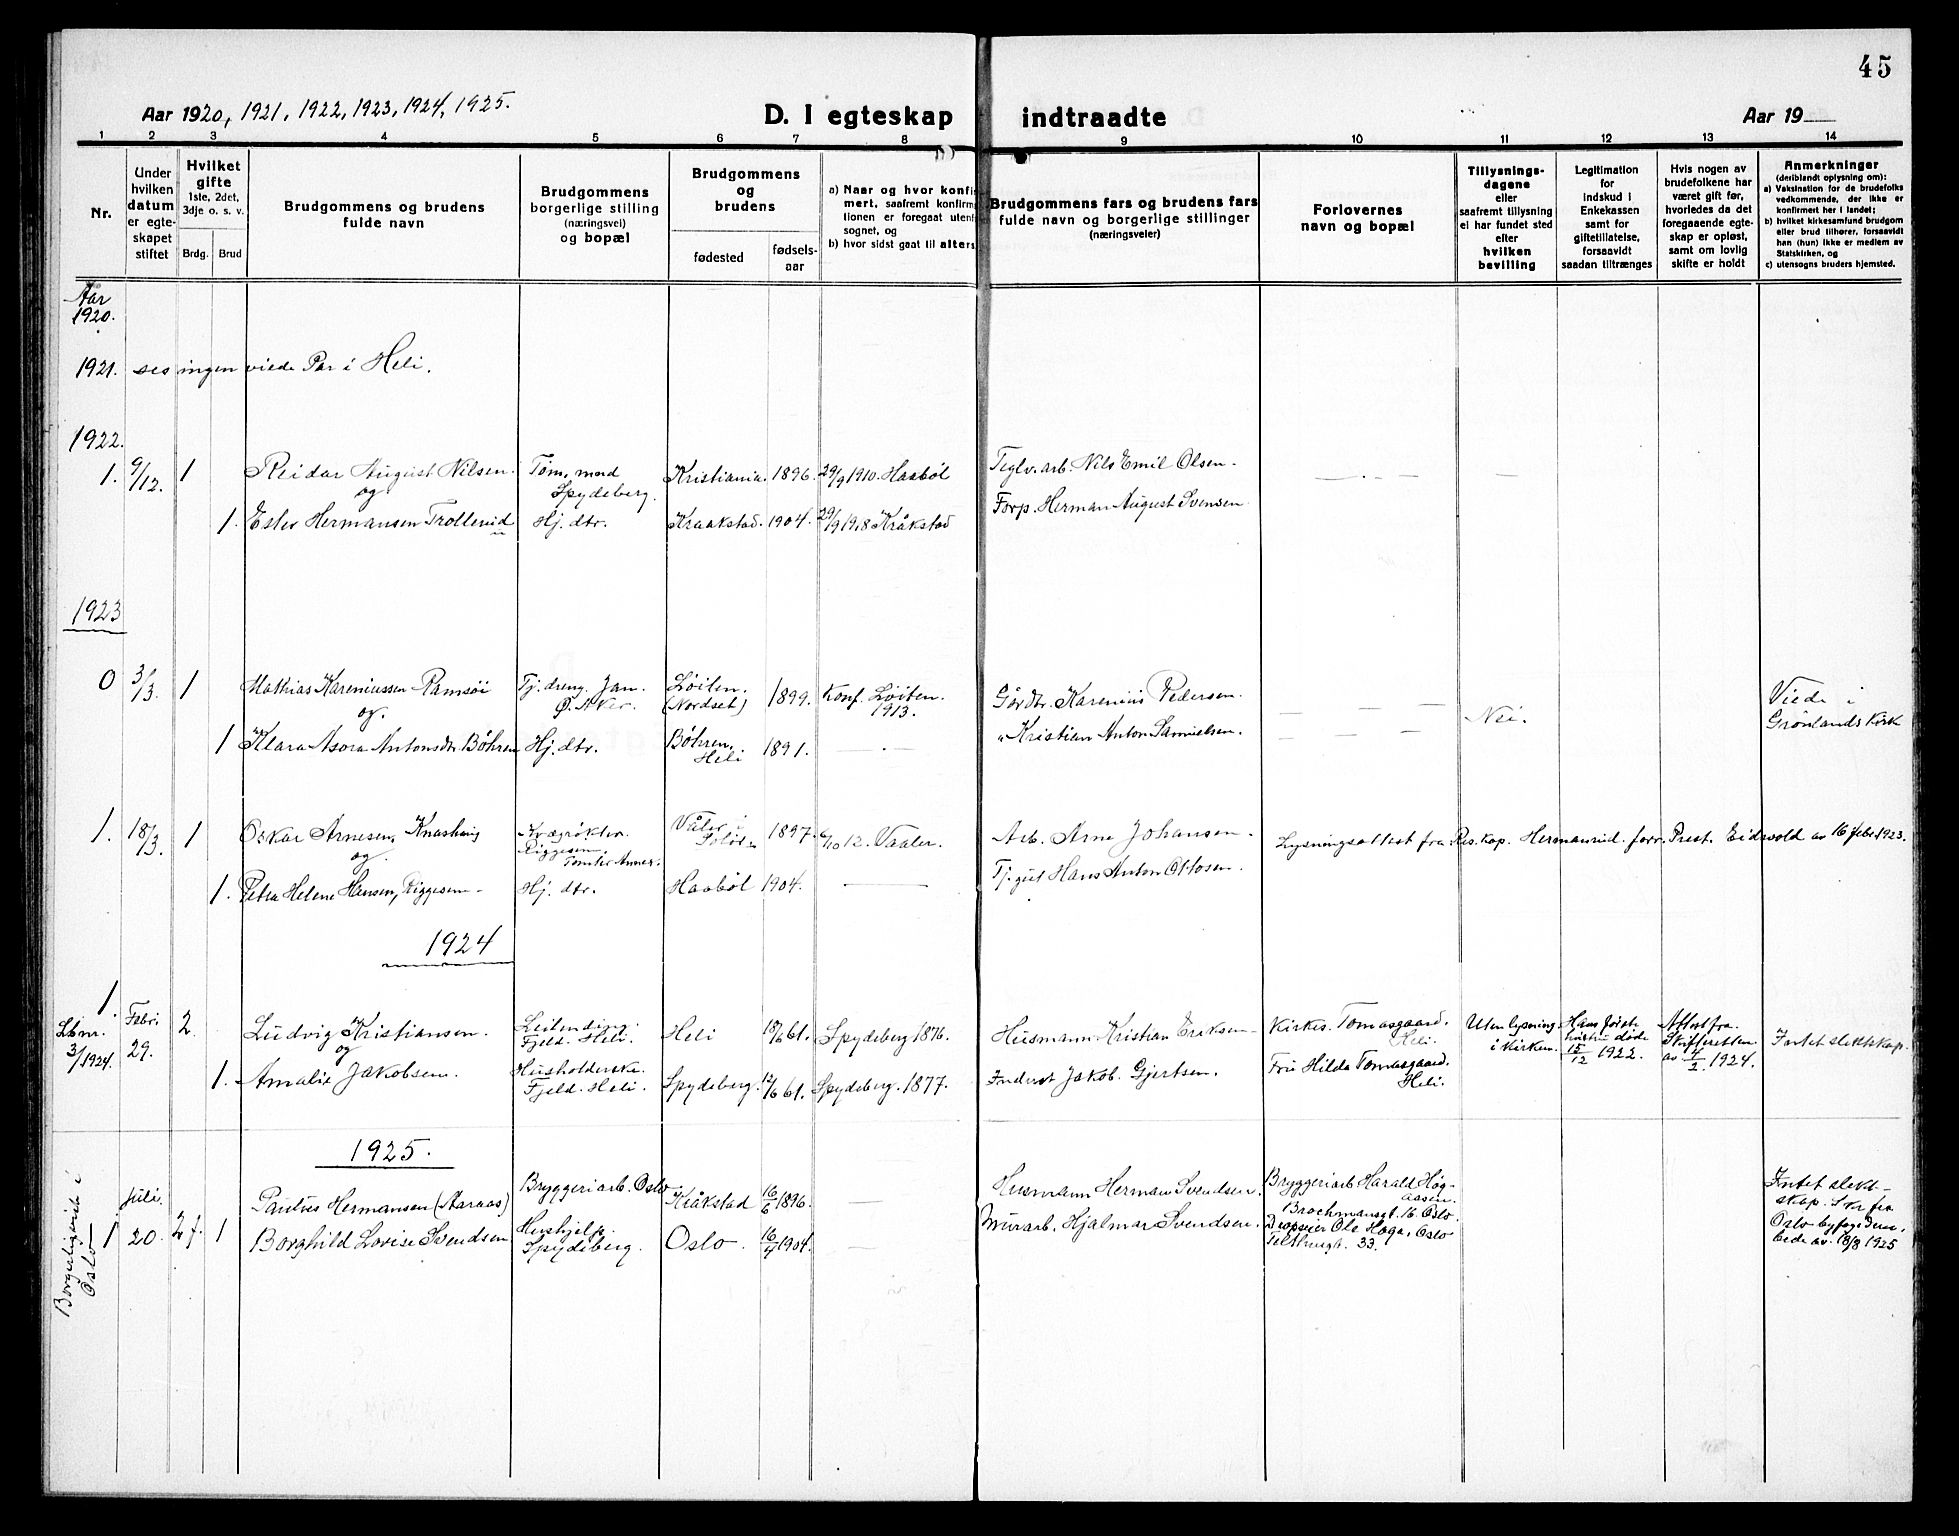 45
Aar 1920, 1921, 1922, 1923, 1924, 1925.
D. I egteskap indtraadte
Aar 19
1 2 3 4 5 6 7 8 9 10 11 12 13 14
Nr.
Under
hvilken
datum
er egte-
skapet
stiftet
Hvilket
gifte
1ste, 2det,
3dje o. s. v.
Brdg. Brud
Brudgommens og brudens
fulde navn
Brudgommens
borgerlige stilling
(næringsvei)
og bopæl
Brudgommens
og
brudens
fødested
fødsels-
aar
a) Naar og hvor konfir
mert, saafremt konfirm
tionen er foregaat utenf
sognet, og
b) hvor sidst gaat til alters
Brudgommens fars og brudens fars
fulde navn og borgerlige stillinger
(næringsveier)
Forlovernes
navn og bopæl
Tillysnings-
dagene
eller
saafremt tillysning
ei har fundet sted
efter
hvilken
bevilling
Legitimation
for
indskud i
Enkekassen
samt for
giftetillatelse,
forsaavidt
saadan tiltrænges
Hvis nogen av
brudefolkene har
været gift før,
hvorledes da det
foregaaende egte-
skap er opløst,
samt om lovlig
skifte er holdt
Anmerkninger
(deriblandt oplysning om):
a) Vaksination for de brudefolks
vedkommende, der ikke er
konfirmert her i landet;
b) hvilket kirkesamfund brudgom
eller brud tilhører, forsaavidt
han (hun) ikke er medlem av
Statskirken, og
c) utensogns bruders hjemsted.
Aar
1920.
1921. ses ingen viede Par i Heli.
1922.
1. 9/12. 1 Reidar August Nilsen. Tøm. mend Kristiania. 1896. 29/9 1910. Haabøl Teglv. arb. Nils Emil Olsen.
og Spydeberg.
1. Ester Hermansen Trollerud Hj. dtr. Kraakstad. 1904. 29/9 1918 Kråkstad Forp. Herman August Svensen
1923
0 3/3. 1 Mathias Kareniussen Ramsøi Tj. dreng. Jan. Løiten. 1899. Konf. Løiten. Gårdbr. Karenius Pedersen. Viede i
og. Ø. Aker. (Nordset) 1913. Nei. Grønlands Kirk
1 Klara Asora Antonsdtr. Bøhren Hj. dtr. Bøhren, 1891. „ Kristian Anton Samuelsen.
Heli
1. 18/3. 1 Oskar Arnesen, Knashaug Kvægrøkter. Våler i 1897. /10 12. Vaaler. Arb. Arne Johansen. Lysningsattest fra Res. kap. Hermanrud. forr. Prest. Eidsvold av 16 febr. 1923.
og. Riggesem. Solør
Tomter Annex.
1. Petra Helene Hansen, Riggesem. Hj. dtr. Haabøl 1904. Tj. gut Hans Anton Ottosen.
1924
1.
Lbnr. Febr. 2. Ludvig Kristiansen. Leilending. Heli 18/6 61. Spydeberg 1876. Husmann Kristian Eriksen. Kirkes. Tomasgaard. Uten lysning Hans første Attest fra. Intet slektskap.
3/1924. 29. og Fjeld. Heli. Heli. i kirken. hustru døde Skifteretten
15/12 1922. av 4/2 1924.
1. Amalie Jakobsen. Husholderske. Spydeberg. 12/6 61. Spydeberg. 1877. Inderst Jakob Gjertsen. Fru Hilda Tomasgaard.
Fjeld. Heli. Heli.
1925.
Borgerlig viede i
Oslo
Juli. Paulus Hermansen (Aaraas) Bryggeriarb. Oslo Kråkstad 16/6 1896. Husmann Herman Svendsen. Bryggeriarb Harald Hog- Intet slekt-
aasen. skap. Skr fra
Brochmansgt. 16 Oslo. Oslo byfogedem-
1 20. 2 f. 1 Borghild Lovise Svendsen Hushjelp. Oslo. 16/4 1904. Murarb. Hjalmar Svendsen. Ole Haga, Oslo bede av. 18/8 1925
Spydeberg. Telthusgt. 33.